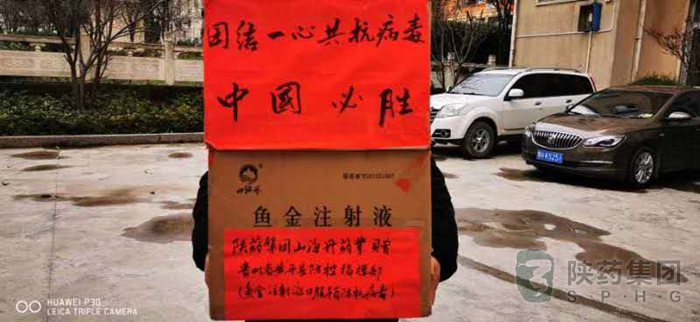 团结一心共抗病毒
中國必胜
鱼金注射液
陕药集团山海丹药業赠
贵州省黄平县防控指揮部
(鱼金注射液口服预防抗病毒)
陕药集团
SPHG
HUAWEI P30
LEICA TRIPLE CAMERA